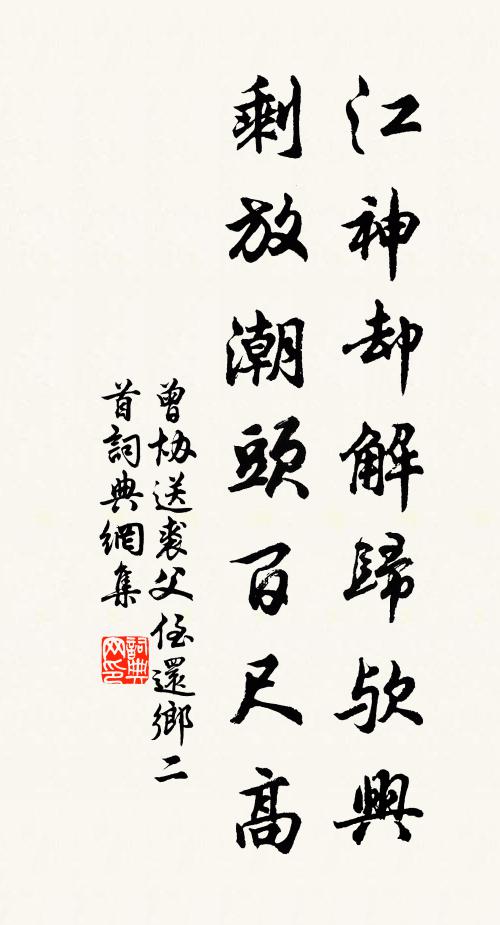 江神却解歸欤興
剩放潮頭百尺高
曾協送裘父侄還鄉二
首詞典網集
詞典
网印